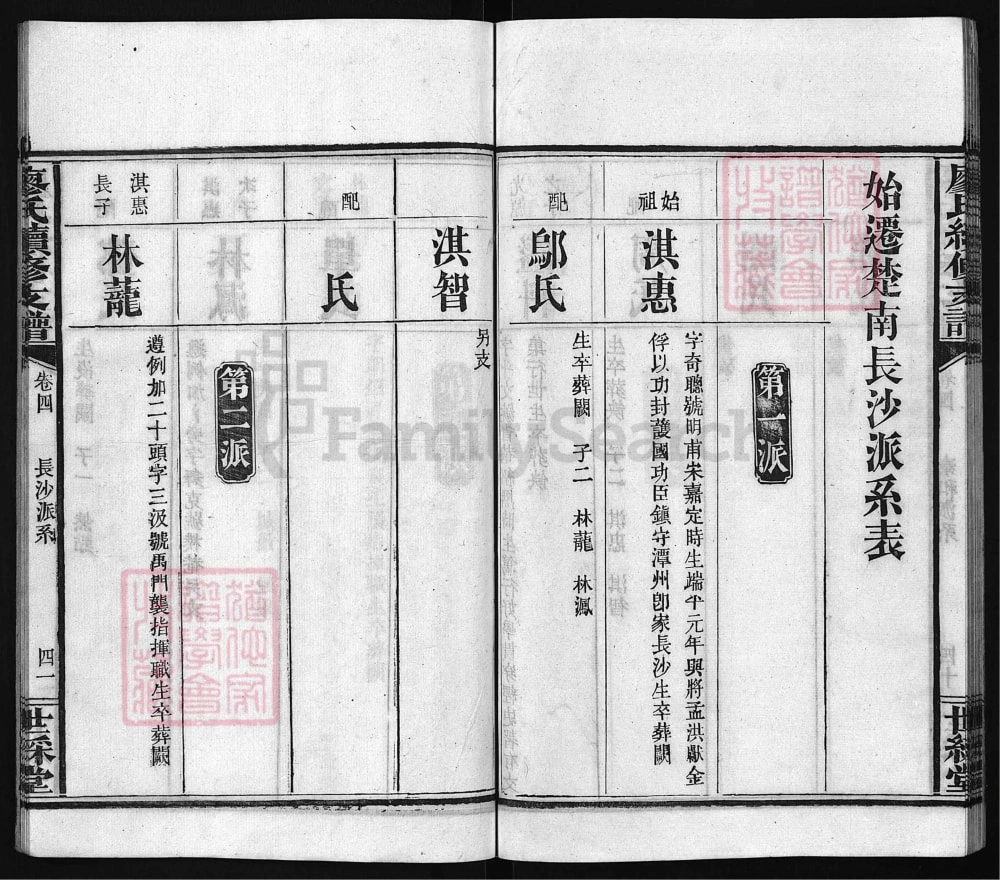 始遷楚南長沙派系表
第一派
始祖
淇惠
字奇聰號明甫宋嘉定時生端平元年與將孟洪獻金
俘以功封護國功臣鎮守潭州卽家長沙生卒葬闕
配
鄔氏
生卒葬闕 子二 林蘢 林渢
淇智
另支
配
氏
第二派
淇惠
長子
林蘢
遵例加二十頭字三汲號禹門襲指揮職生卒葬闕
廖氏續修支譜
卷四
長沙派系
四一
世綵堂
FamilySearch